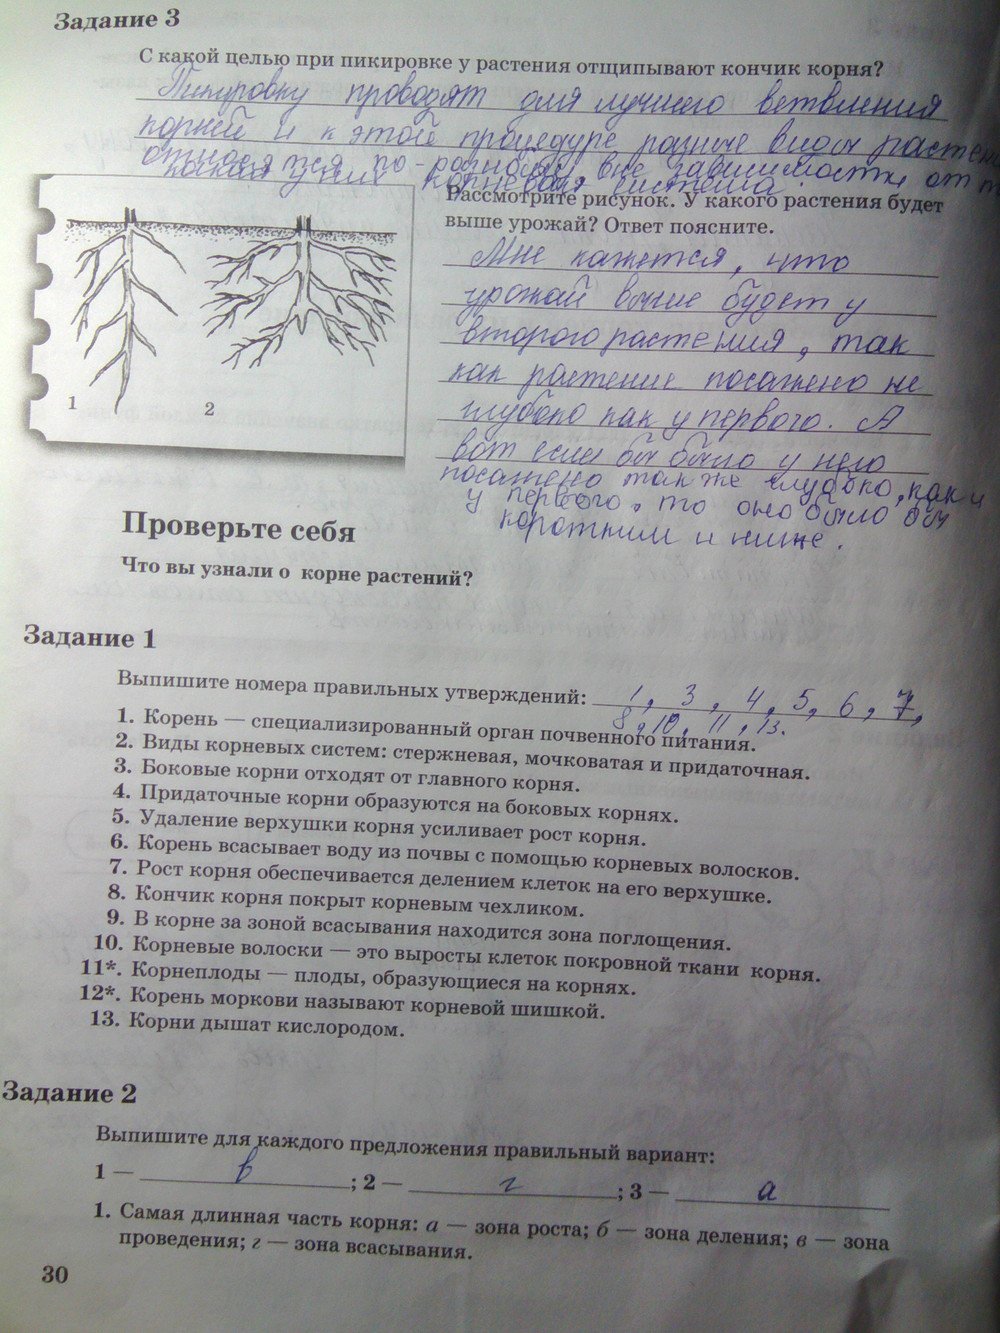 Задание 3
С какой целью при пикировке у растения отщипывают кончик корня?
Пикировку проводят для лучшего ветвления
корней и к этой процедуре разные виды растен
относятся по-разному, вне зависимости от т
какая у них корневая система.
Рассмотрите рисунок. У какого растения будет
выше урожай? Ответ поясните.
Мне кажется, что
урожай выше будет у
второго растения, так
как растение посажено не
глубоко как у первого. А
вот если бы было у него
посажено так же глубоко, как и
у первого, то оно было бы
коротким и ниже.
1
2
Проверьте себя
Что вы узнали о корне растений?
Задание 1
Выпишите номера правильных утверждений: 1, 3, 4, 5, 6, 7,
8, 10, 11, 13.
1. Корень — специализированный орган почвенного питания.
2. Виды корневых систем: стержневая, мочковатая и придаточная.
3. Боковые корни отходят от главного корня.
4. Придаточные корни образуются на боковых корнях.
5. Удаление верхушки корня усиливает рост корня.
6. Корень всасывает воду из почвы с помощью корневых волосков.
7. Рост корня обеспечивается делением клеток на его верхушке.
8. Кончик корня покрыт корневым чехликом.
9. В корне за зоной всасывания находится зона поглощения.
10. Корневые волоски — это выросты клеток покровной ткани корня.
11*. Корнеплоды — плоды, образующиеся на корнях.
12*. Корень моркови называют корневой шишкой.
13. Корни дышат кислородом.
Задание 2
Выпишите для каждого предложения правильный вариант:
1 — в ; 2 — г ; 3 — а
1. Самая длинная часть корня: а — зона роста; б — зона деления; в — зона
проведения; г — зона всасывания.
30